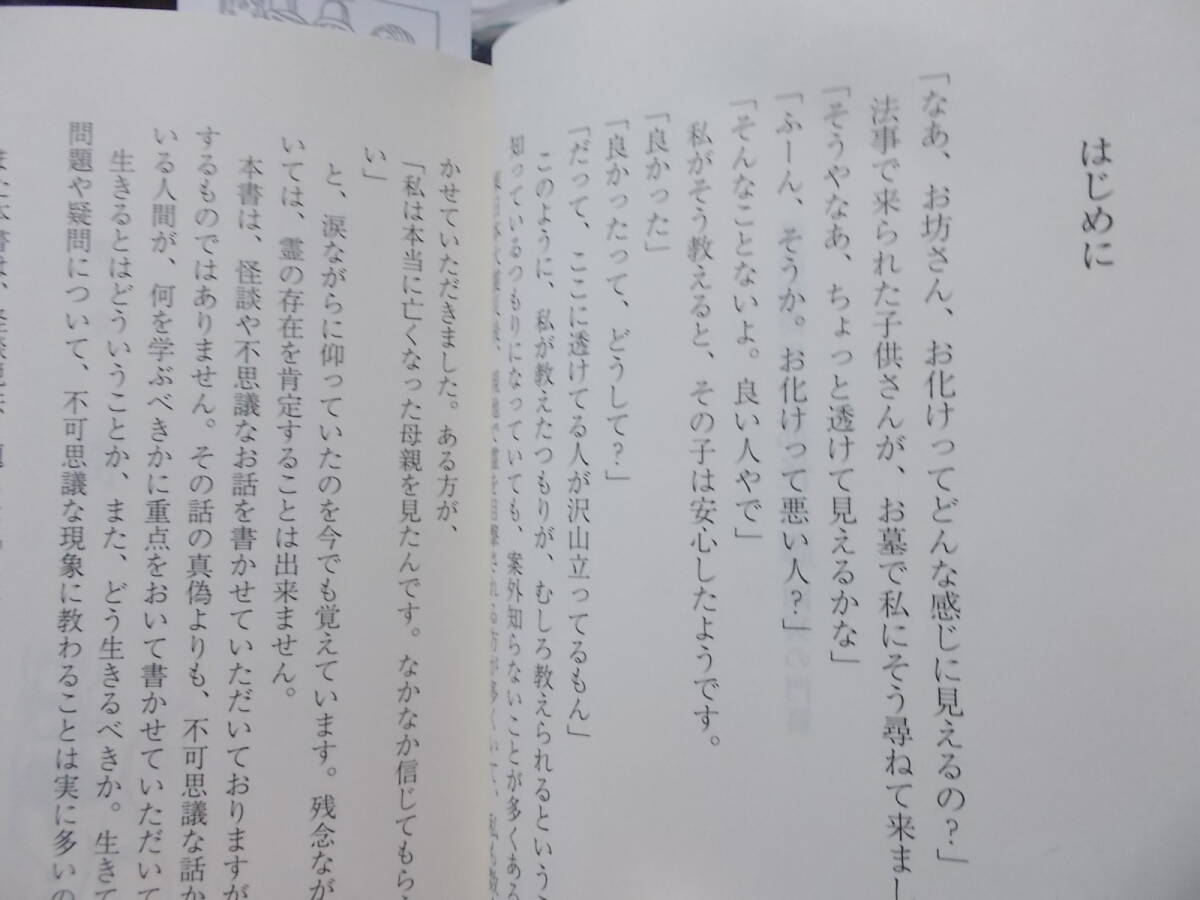 はじめに
「なあ、お坊さん、お化けってどんな感じに見えるの?」
法事で来られた子供さんが、お墓で私にそう尋ねて来まし
「そうやなあ、ちょっと透けて見えるかな」
「ふーん、そうか。お化けって悪い人?」
「そんなことないよ。良い人やで」
私がそう教えると、その子は安心したようです。
「良かった」
「良かったって、どうして?」
「だって、ここに透けてる人が沢山立ってるもん」
このように、私が教えたつもりが、むしろ教えられるという
知っているつもりになっていても、案外知らないことが多くある
かせていただきました。ある方が、
「私は本当に亡くなった母親を見たんです。なかなか信じてもら
い」
と、涙ながらに仰っていたのを今でも覚えています。残念なが
いては、霊の存在を肯定することは出来ません。
本書は、怪談や不思議なお話を書かせていただいておりますが
するものではありません。その話の真偽よりも、不可思議な話か
いる人間が、何を学ぶべきかに重点をおいて書かせていただいて
生きるとはどういうことか、また、どう生きるべきか。生きて
問題や疑問について、不可思議な現象に教わることは実に多いの